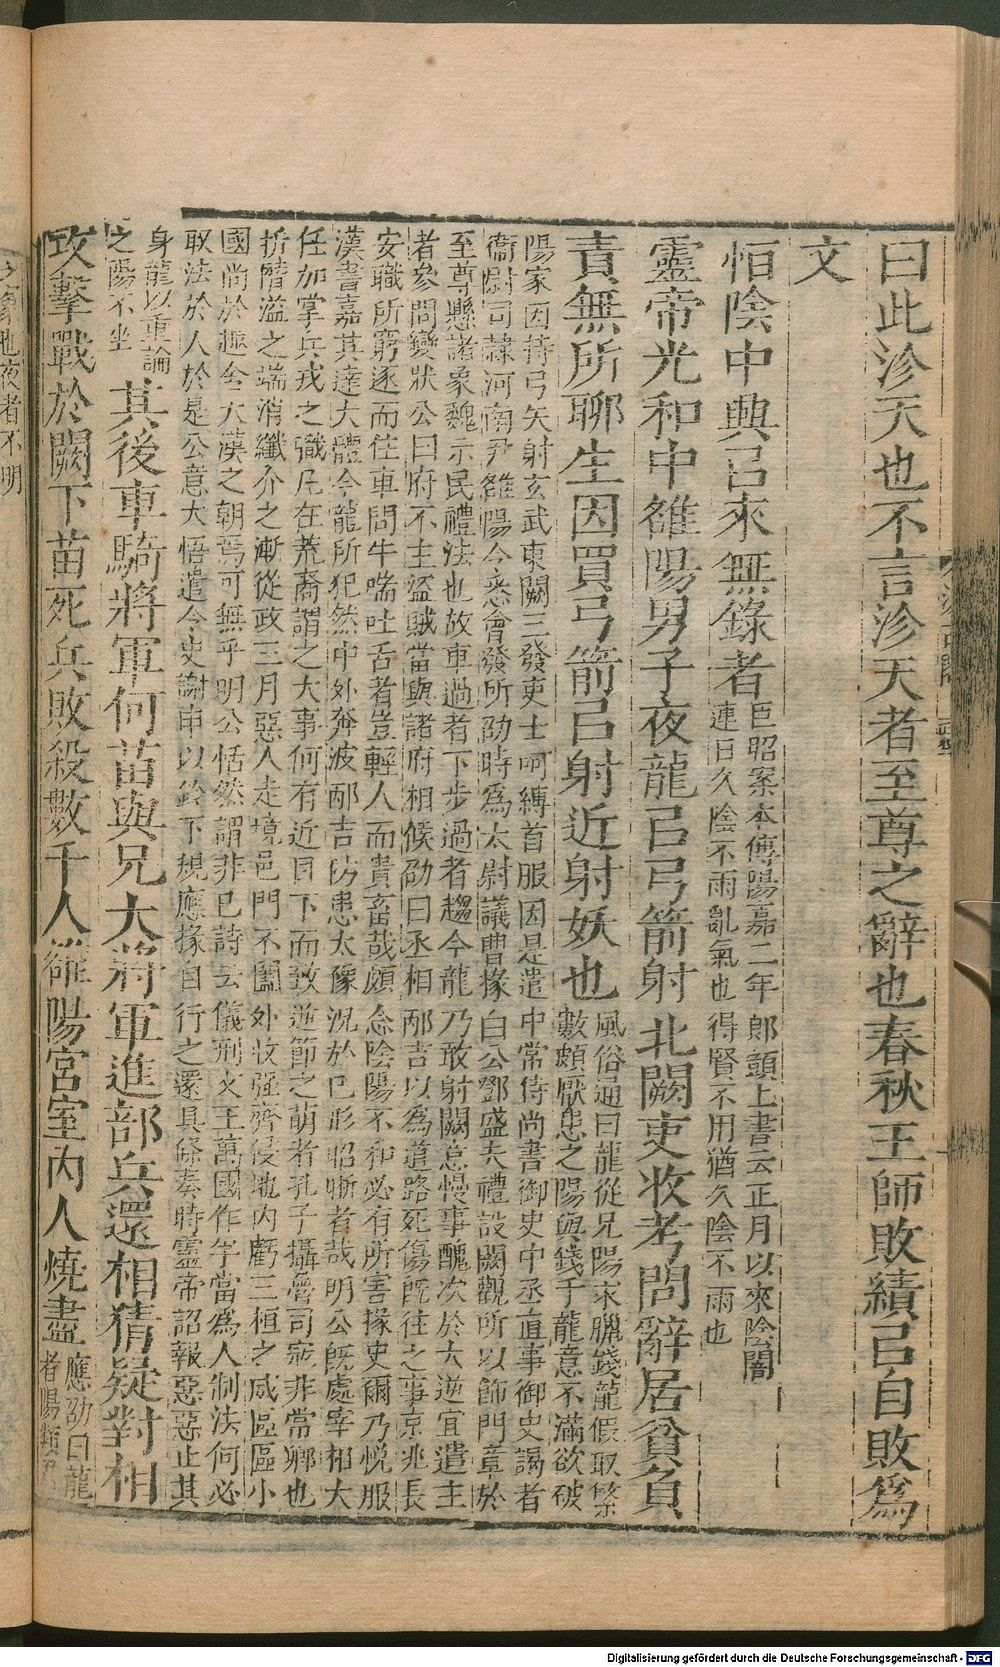 曰此沴天也不言沴天者至尊之辭也春秋王師敗績㠯自敗爲
文
恒陰中興㠯來無錄者
臣昭案本傳陽嘉二年郞顗上書云正月以來陰闇
連日久陰不雨亂氣也得賢不用猶久陰不雨也
靈帝光和中雒陽男子夜龍㠯弓箭射北闕吏收考問辭居貧負
責無所聊生因買弓箭㠯射近射妖也
風俗通曰龍從兄陽求臘錢龍假取繁
數頗厭患之陽與錢千龍意不滿欲破
陽家因持弓矢射玄武東闕三發吏士呵縛首服因是遣中常侍尚書御史中丞直事御史謁者
衞尉司隸河南尹雒陽令悉會發所劭時爲太尉議曹掾白公鄧盛夫禮設闕觀所以飾門章於
至尊懸諸象魏示民禮法也故車過者下步過者趨今龍乃敢射闕意慢事醜次於大逆宜遣主
者參問變狀公曰府不主盜賊當與諸府相候劭曰丞相邴吉以爲道路死傷旣往之事京兆長
安職所窮逐而住車問牛喘吐舌者豈輕人而貴畜哉頗念陰陽不和必有所害掾史爾乃悅服
漢書嘉其達大體今龍所犯然中外奔波邴吉防患太豫況於已形昭晣者哉明公旣處宰相大
任加掌兵戎之職凡在荒裔謂之大事何有近目下而致逆節之萌者孔子攝魯司寇非常卿也
折僭溢之端消纖介之漸從政三月惡人走境邑門不闔外收强齊侵地內虧三桓之威區區小
國尚於趣舍大漢之朝焉可無乎明公恬然謂非已詩云儀刑文王萬國作孚當爲人制法何必
取法於人於是公意大悟遣令史謝申以鈴下規應掾自行之還具條奏時靈帝詔報惡惡止其
身龍以重論
之陽不坐
其後車騎將軍何苗與兄大將軍進部兵還相猜疑對相
攻擊戰於闕下苗死兵敗殺數千人雒陽宮室內人燒盡
應劭曰龍
者陽類
之象也夜者不明
Digitalisierung gefördert durch die Deutsche Forschungsgemeinschaft - DFG